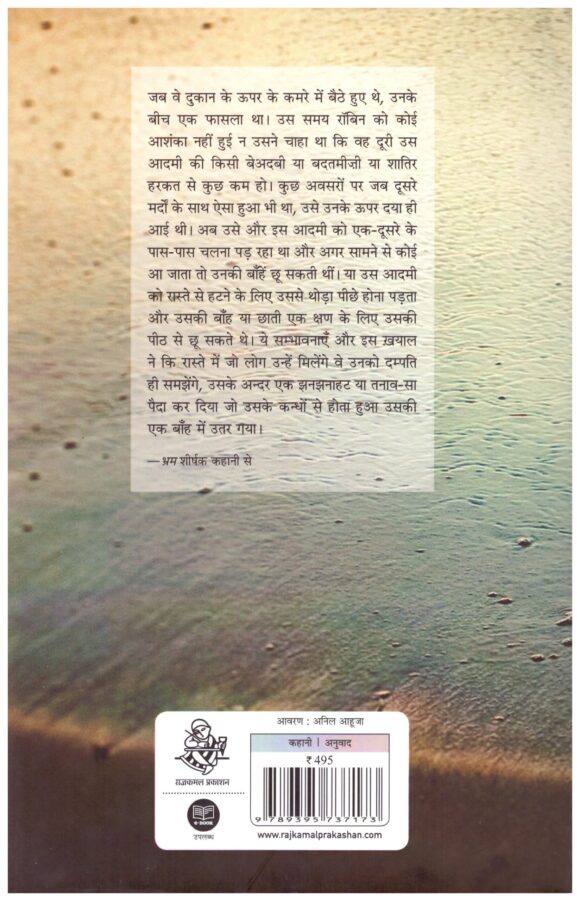 जब वे दुकान के ऊपर के कमरे में बैठे हुए थे, उनके
बीच एक फासला था। उस समय रॉबिन को कोई
आशंका नहीं हुई न उसने चाहा था कि वह दूरी उस
आदमी की किसी बेअदबी या बदतमीज़ी या शातिर
हरकत से कुछ कम हो। कुछ अवसरों पर जब दूसरे
मर्दों के साथ ऐसा हुआ भी था, उसे उनके ऊपर दया ही
आई थी। अब उसे और इस आदमी को एक-दूसरे के
पास-पास चलना पड़ रहा था और अगर सामने से कोई
आ जाता तो उनकी बाँहें छू सकती थीं। या उस आदमी
को रास्ते से हटने के लिए उससे थोड़ा पीछे होना पड़ता
और उसकी बाँह या छाती एक क्षण के लिए उसकी
पीठ से छू सकते थे। ये सम्भावनाएँ और इस ख़याल
ने कि रास्ते में जो लोग उन्हें मिलेंगे वे उनको दम्पति
ही समझेंगे, उसके अन्दर एक झनझनाहट या तनाव-सा
पैदा कर दिया जो उसके कन्धों से होता हुआ उसकी
एक बाँह में उतर गया।
—भ्रम शीर्षक कहानी से
आवरण : अनिल आहूजा
कहानी | अनुवाद
₹ 495
राजकमल प्रकाशन
e-BOOK
उपलब्ध
9 789395 737173
www.rajkamalprakashan.com